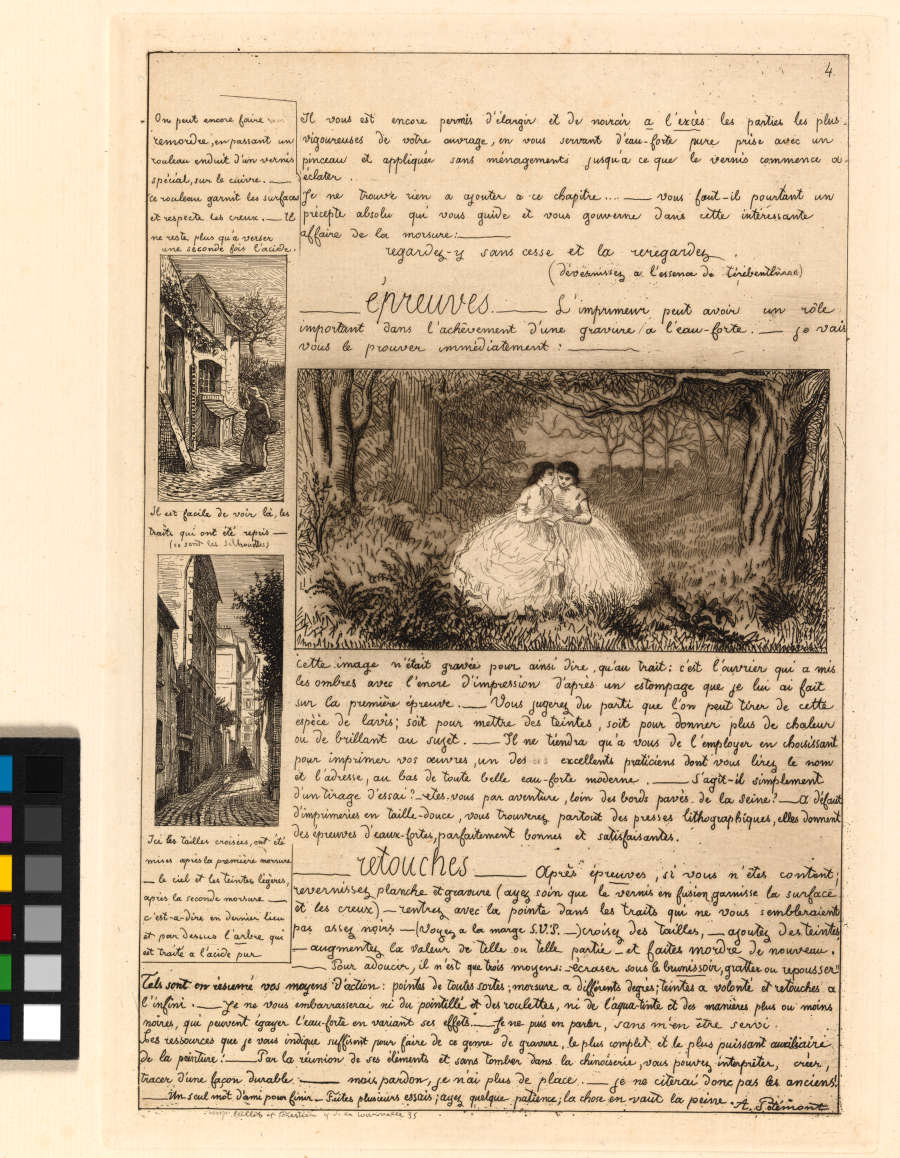 4
On peut encore faire
remordre, en passant un
rouleau enduit d'un vernis
spécial, sur le cuivre. —
Ce rouleau garnit les surfaces
et respecte les creux. — Il
ne reste plus qu'a verser
une seconde fois l'acide.
Il vous est encore permis d'élargir et de noircir a l'excès les parties les plus
vigoureuses de votre ouvrage, en vous servant d'eau-forte pure prise avec un
pinceau et appliquée sans ménagements jusqu'a ce que le vernis commence a
éclater.
Je ne trouve rien a ajouter a ce chapitre.... — vous faut-il pourtant un
précepte absolu qui vous guide et vous gouverne dans cette intéressante
affaire de la morsure: —
regardez-y sans cesse et la reregardez
(dévernissez a l'essence de térébenthine)
— épreuves. — L'imprimeur peut avoir un rôle
important dans l'achèvement d'une gravure a l'eau-forte. — je vais
vous le prouver immédiatement: —
Il est facile de voir là, les
traits qui ont été repris —
(ce sont les silhouettes)
Ici les tailles croisées, ont été
mises après la première morsure
— le ciel et les teintes légères,
après la seconde morsure —
c'est-a-dire en dernier lieu
et par dessus l'arbre qui
est traité a l'acide pur
cette image n'était gravée pour ainsi dire, qu'au trait: c'est l'ouvrier qui a mis
les ombres avec l'encre d'impression d'après un estompage que je lui ai fait
sur la première épreuve. — Vous jugerez du parti que l'on peut tirer de cette
espèce de lavis; soit pour mettre des teintes, soit pour donner plus de chaleur
ou de brillant au sujet. — Il ne tiendra qu'a vous de l'employer en choisissant
pour imprimer vos œuvres, un des excellents praticiens dont vous lirez le nom
et l'adresse, au bas de toute belle eau-forte moderne. — S'agit-il simplement
d'un tirage d'essai? — etes-vous par aventure, loin des bords pavés de la Seine? — a défaut
d'imprimeries en taille-douce, vous trouverez partout des presses lithographiques, elles donnent
des épreuves d'eaux-fortes, parfaitement bonnes et satisfaisantes.
retouches — Après épreuves, si vous n'êtes content;
revernissez planche et gravure (ayez soin que le vernis en fusion garnisse la surface
et les creux) — rentrez avec la pointe dans les traits qui ne vous sembleraient
pas assez noirs — (Voyez a la marge S.V.P. —) croisez des tailles, — ajoutez des teintes
— augmentez la valeur de telle ou telle partie et faites mordre de nouveau.
— Pour adoucir, il n'est que trois moyens: écraser sous le bunissoir, gratter ou repousser
Tels sont en résumé vos moyens d'action: pointes de toutes sortes; morsure a différents degrés; teintes a volonté et retouches a
l'infini. — Je ne vous embarrasserai ni du pointillé et des roulettes, ni de l'aqua-tinte et des manières plus ou moins
noires, qui peuvent égayer l'eau-forte en variant ses effets. — Je ne puis en parler, sans m'en être servi.
Les ressources que je vous indique suffisent pour faire de ce genre de gravure, le plus complet et le plus puissant auxiliaire
de la peinture! — Par la réunion de ses éléments et sans tomber dans la chinoiserie, vous pouvez interpréter, créer,
tracer d'une façon durable — mais pardon, je n'ai plus de place. — je ne citerai donc pas les anciens!
— Un seul mot d'ami pour finir — Faites plusieurs essais; ayez quelque patience; la chose en vaut la peine. A. Potémont
35